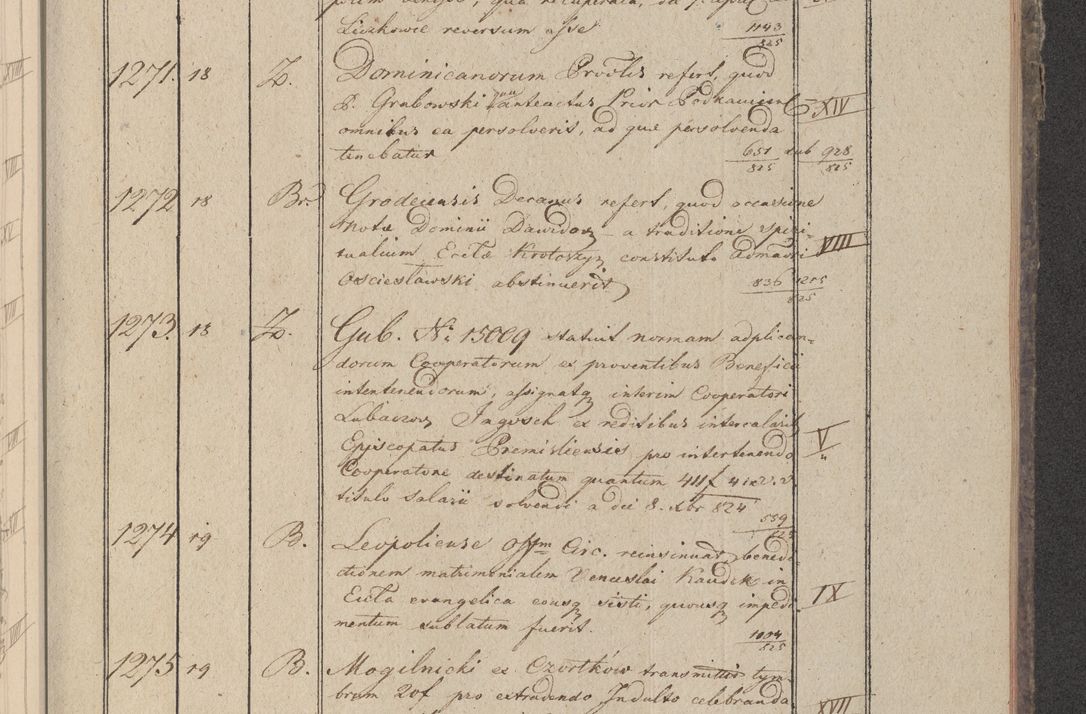 Liczkowie reversum esse
1143
825
1271. 18 Z. Dominicanorum Provlis refert, quod
P. Grabowski anteactus Prior Podkamien XIV
omnibus ea persolverit, ad que persolvenda
tenebatur 651 sub 928
825 825
1272 18 Br. Grodecensis Decanus refert, quod occasione
Motæ Dominii Dawidow a traditione spiri-
tualium Ecclæ Krotoszyn constituto Admstri VIII
Oscieslawski abstinuerit 836 1215
825
1273. 18 Z. Gub. No 15009 statuit normam adplican-
dorum Cooperatorum ex proventibus Beneficii
intertenendorum, assignatq interim Cooperatori
Lubaczow Jagusch ex reditibus intercalar
Episcopatus Premisliensis pro intertenendo V
Cooperatore destinatum quantum 411 f 4 xr
titulo salarii solvendi a die 8. Xbr 824
559
825
1274 19 B. Leopoliense Offm Circ. reinsinuat benedi-
ctionem matrimonialem Venceslai Kaudik in
Eccla evangelica eousq sisti, quousq impedi- IX
mentum sublatum fuerit.
1004
825
1275 19 B. Mogilnicki ex Czortków transmittit tym-
brum 20f pro extradendo Indulto celebranda
XVII
XIII
VIII
XV
VII